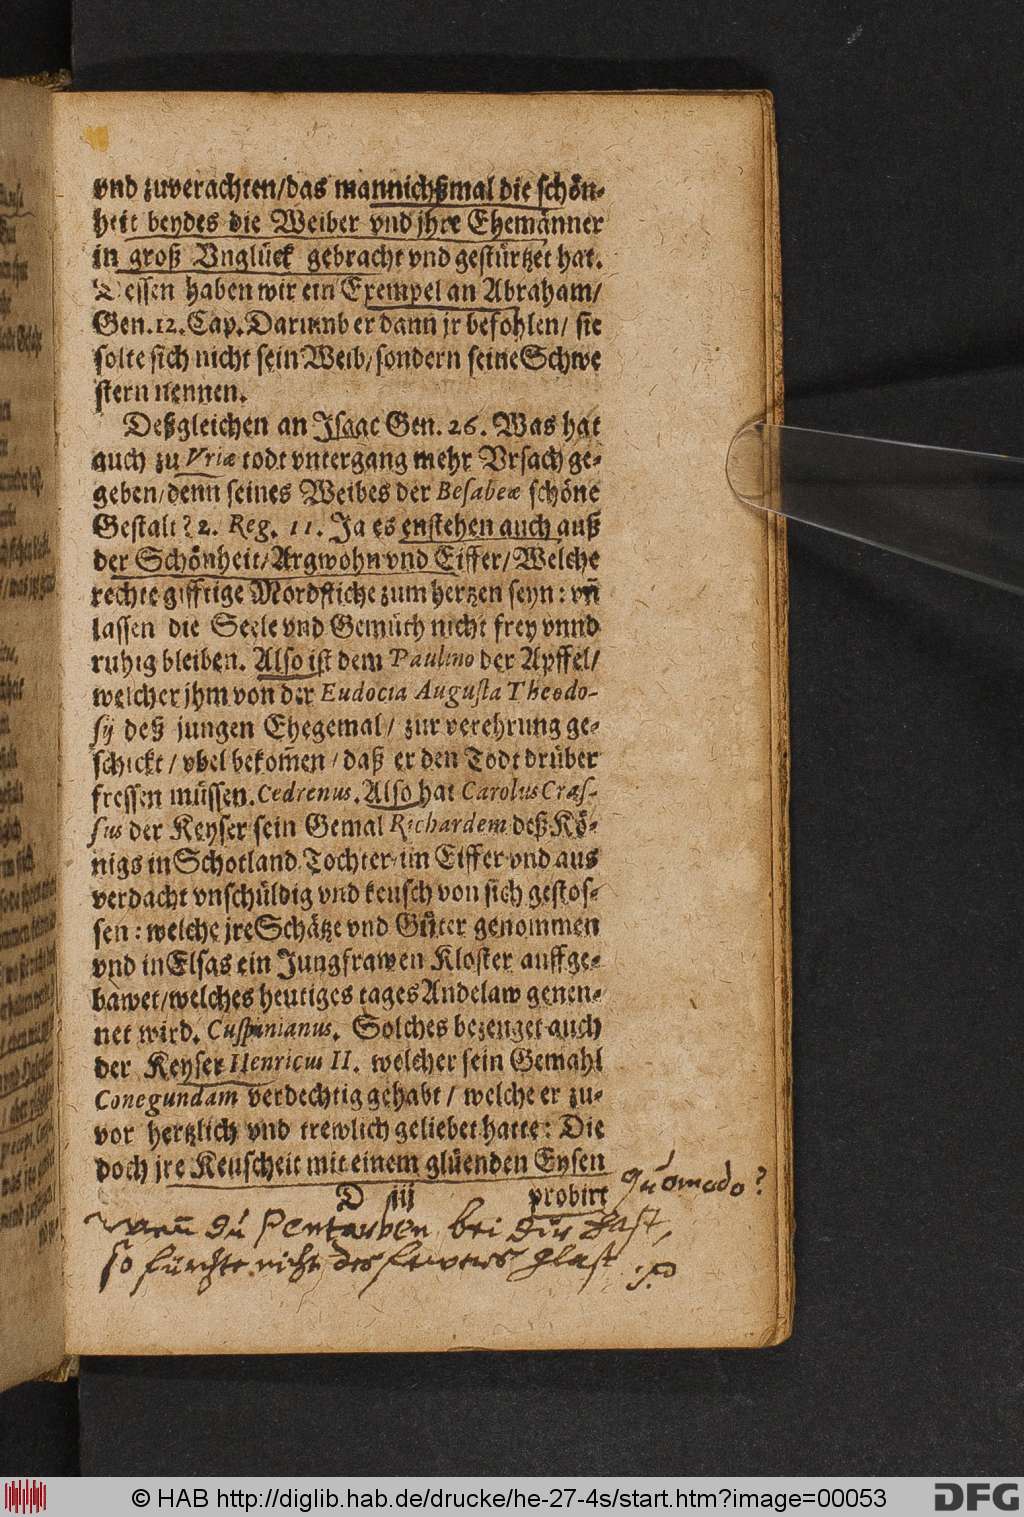 vnd zuverachten/das mannichßmal die schön-
heit beydes die Weiber vnd jhre Ehemänner
in groß Vnglück gebracht vnd gestürtzet hat.
Dessen haben wir ein Exempel an Abraham/
Gen. 12. Cap. Darumb er dann jr befohlen/ sie
solte sich nicht sein Weib/sondern seine Schwe
stern nennen.
Deßgleichen an Isaac Gen. 26. Was hat
auch zu Vriæ todt vntergang mehr Vrsach ge-
geben/denn seines Weibes der Besabeæ schöne
Gestalt? 2. Reg. 11. Ja es enstehen auch auß
der Schönheit/Argwohn vnd Eiffer/Welche
rechte gifftige Mordstiche zum hertzen seyn: vñ
lassen die Seele vnd Gemüth nicht frey vnnd
ruhig bleiben. Also ist dem Paulino der Apffel/
welcher jhm von der Eudocia Augusta Theodo-
sij deß jungen Ehegemal/ zur verehrung ge-
schickt/ vbel bekom̃en/ daß er den Todt drüber
fressen müssen. Cedrenus. Also hat Carolus Cras-
sus der Keyser sein Gemal Richardem deß Kö-
nigs in Schotland Tochter im Eiffer vnd aus
verdacht vnschüldig vnd keusch von sich gestos-
sen: welche jre Schätze vnd Güter genommen
vnd in Elsas ein Jungfrawen Kloster auffge-
bawet/welches heutiges tages Andelaw genen-
net wird. Cuspinianus. Solches bezeuget auch
der Keyser Henricus II. welcher sein Gemahl
Conegundam verdechtig gehabt/ welche er zu-
vor hertzlich vnd trewlich geliebet hatte: Die
doch jre Keuscheit mit einem glüenden Eysen
D iij probirt quomodo?
Wenn du Pentarben bei dir hast,
so fürchte nicht des fewers glast
© HAB http://diglib.hab.de/drucke/he-27-4s/start.htm?image=00053 DFG